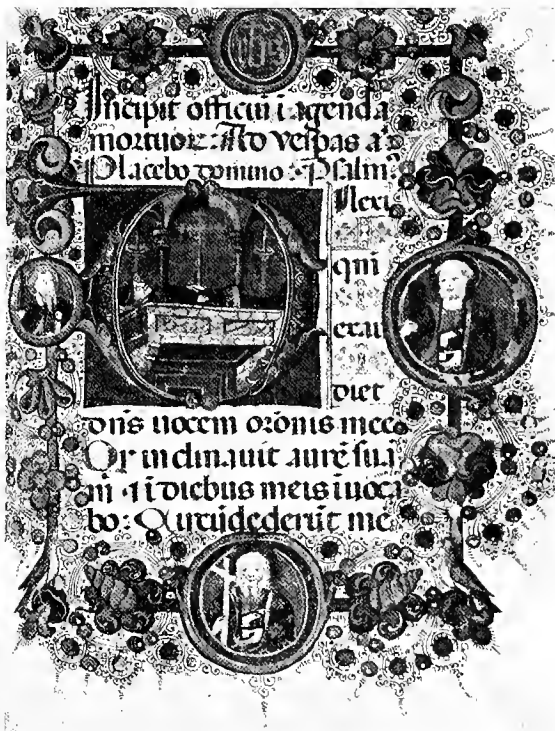 yhs
Incipit officiū i agenda
mortuoꝝ: Ad vespas añ
Placebo domino: Psalmꝰ
Ilexi
qm
exau
diet
dns uocem orōnis mee
Qr inclinauit aurē suā
m̄ i diebus meis iuoca
bo: Circūdederūt me